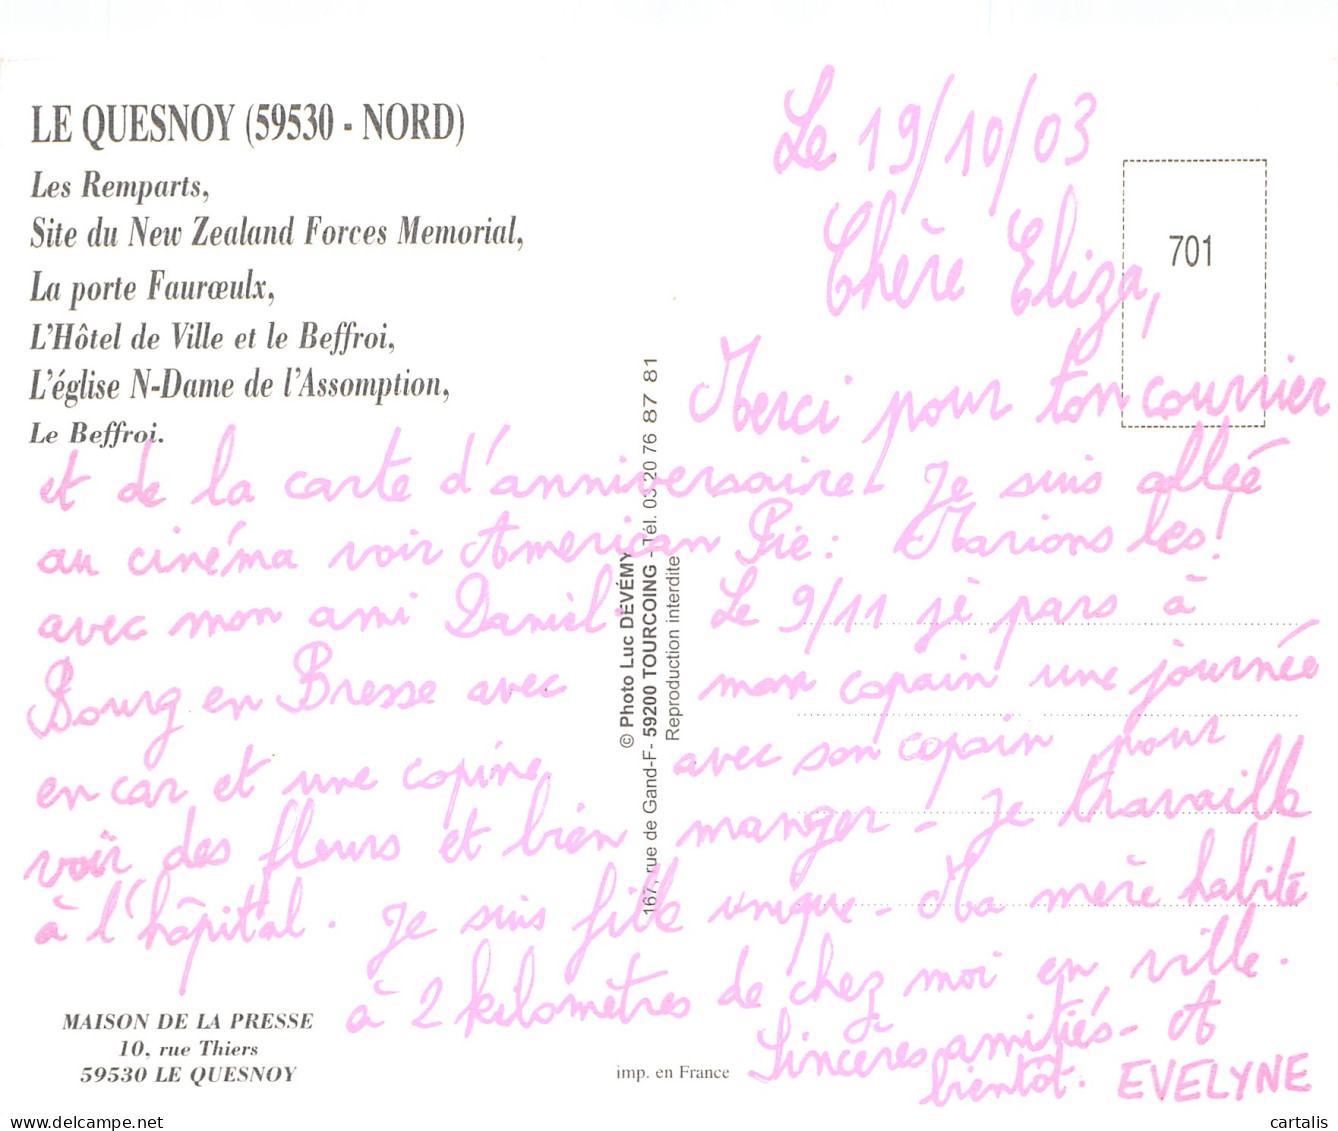 LE QUESNOY (59530 - NORD)
Les Remparts,
Site du New Zealand Forces Memorial,
La porte Faurœulx,
L'Hôtel de Ville et le Beffroi,
L'église N-Dame de l'Assomption,
Le Beffroi.
701
Le 19/10/03
Chère Eliza,
Merci pour ton courrier
et de la carte d'anniversaire. Je suis allée
au cinéma voir American Pie : Marions les !
avec mon ami Daniel. Le 9/11 je pars à
Bourg en Bresse avec mon copain une journée
en car et une copine avec son copain pour
voir des fleurs et bien manger - Je travaille
à l'hôpital. Je suis fille unique - Ma mère habite
à 2 kilomètres de chez moi en ville.
Sincères amitiés - A
bientôt. EVELYNE
© Photo Luc DÉVÉMY
167, rue de Gand-F- 59200 TOURCOING - Tél. 03 20 76 87 81
Reproduction interdite
MAISON DE LA PRESSE
10, rue Thiers
59530 LE QUESNOY
imp. en France
www.delcampe.net
cartalis